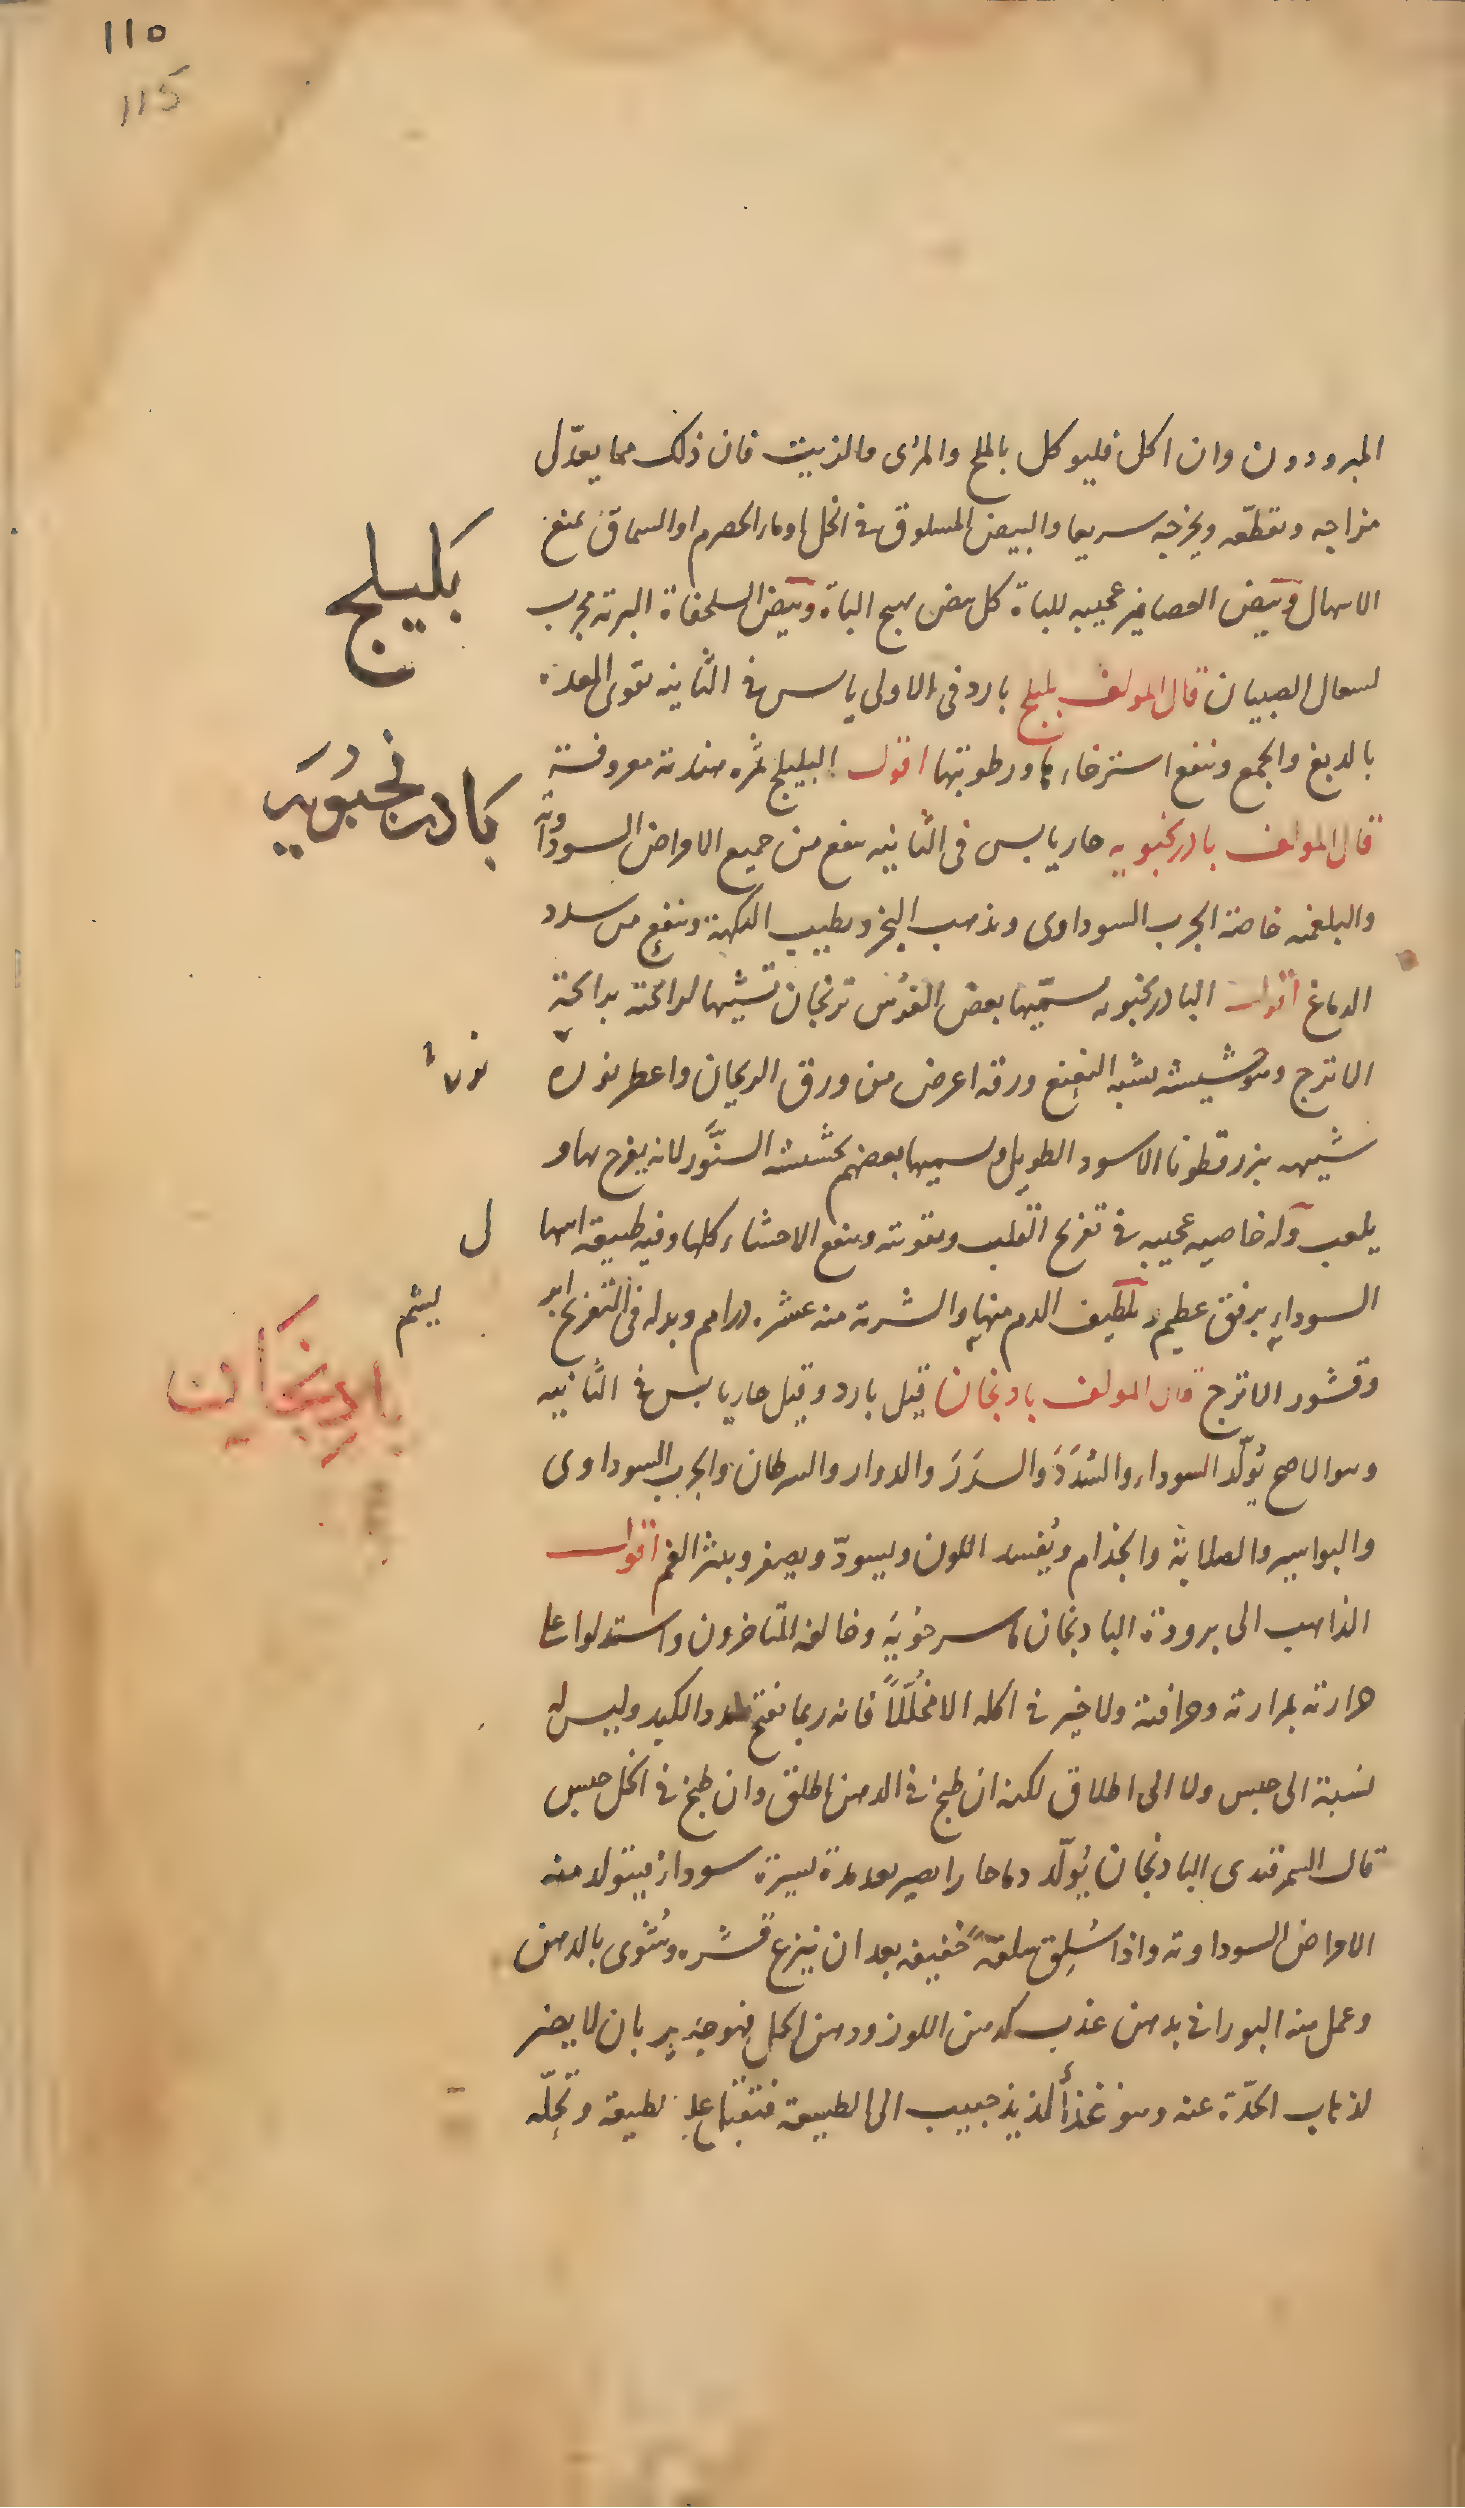 ١١٥
115
المبرودون وان اكل فليوكل بالملح والمرى والزيت فان ذلك مما يعدّل
مزاجه ويقطعه ويخرجه سريعا والبيض المسلوق فى الخل او ماء الحصرم او السماق يمنع
الاسهال وبيض العصافير عجيبه للباة كل بيض يهيج الباة وبيض السلحفاة البرية مجرب
لسعال الصبيان قال المولف بليلج بارد فى الاولى يابس فى الثانيه يقوى المعدة
بليلج
بالدبغ والجمع وينفع استرخاءها ورطوبتها اقول البليلج ثمره هندية معروفة
قال المولف بادرنجبويه حار يابس فى الثانيه ينفع من جميع الامراض السوداوية
بادرنجبويه
والبلغميه خاصة الجرب السوداوى ويذهب البخر ويطيب النكهة وينفع من سدد
الدماغ اقول البادرنجبويه يسميها بعض الفرس ترنجان تشبيها لرائحته برائحة
الاترج وهو حشيشة يشبه النعنع ورقه اعرض من ورق الريحان واعطر نوره
شبيه بزرقطونا الاسود الطويل ويسميها بعضهم حشيشة السنّور لانه يفرح بها و
يلعب وله خاصيه عجيبه فى تفريح القلب وتقويته وينفع الاحشاء كلها وفيه طبيعة اسها
ل
السوداء برفق عظيم وتلطيف الدم منها والشربة منه عشره دراهم وبدله فى التفريح ابر
يشم
وقشور الاترج قال المولف بادنجان قيل بارد وقيل حار يابس فى الثانيه
بادنجان
وهو الاصح يُولّد السوداء والسُدَدَ والسدَرَ والدوار والسرطان والجرب السوداوى
والبواسير والصلابة والجذام ويُفسد اللون ويسوّد ويصفر ويبثر الفم اقول
الذاهب الى برودة البادنجان ماسرجويَه وخالفه المتاخرون واستدلوا على
حرارته بمرارته وحرافته ولا خير فى اكله الا مخلَّلاً فانه ربما يفتح سدد الكبد وليس له
نسبة الى حبس ولا الى اطلاق لكنه ان طبخ فى الدهن اطلق وان طبخ فى الخل حبس
قال السمرقندى البادنجان يُولّد دما حارا يصير بعد مدة يسيرة سوداء فيتولد منه
الامراض السوداوية واذا سُلِق سلقةً خفيفه بعد ان ينزع قشره وشوى بالدهن
وعمل منه البورانى بدهن عذب كدهن اللوز ودهن الخل فهو جدير بان لا يضر
لذهاب الحدّة عنه وهو غذاء لذيذ حبيب الى الطبيعة